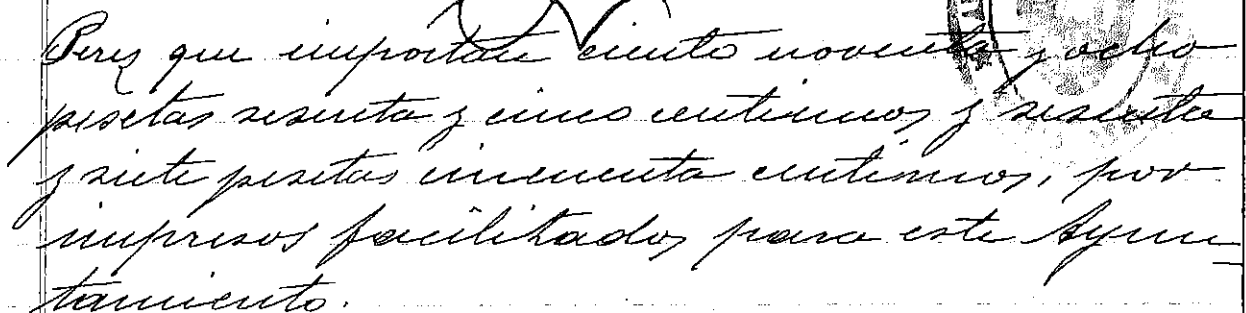 Perez que importan ciento noventa y ocho
pesetas sesenta y cinco centimos y sesenta
y siete pesetas cincuenta centimos, por
impresos facilitados para este Ayun
tamiento.